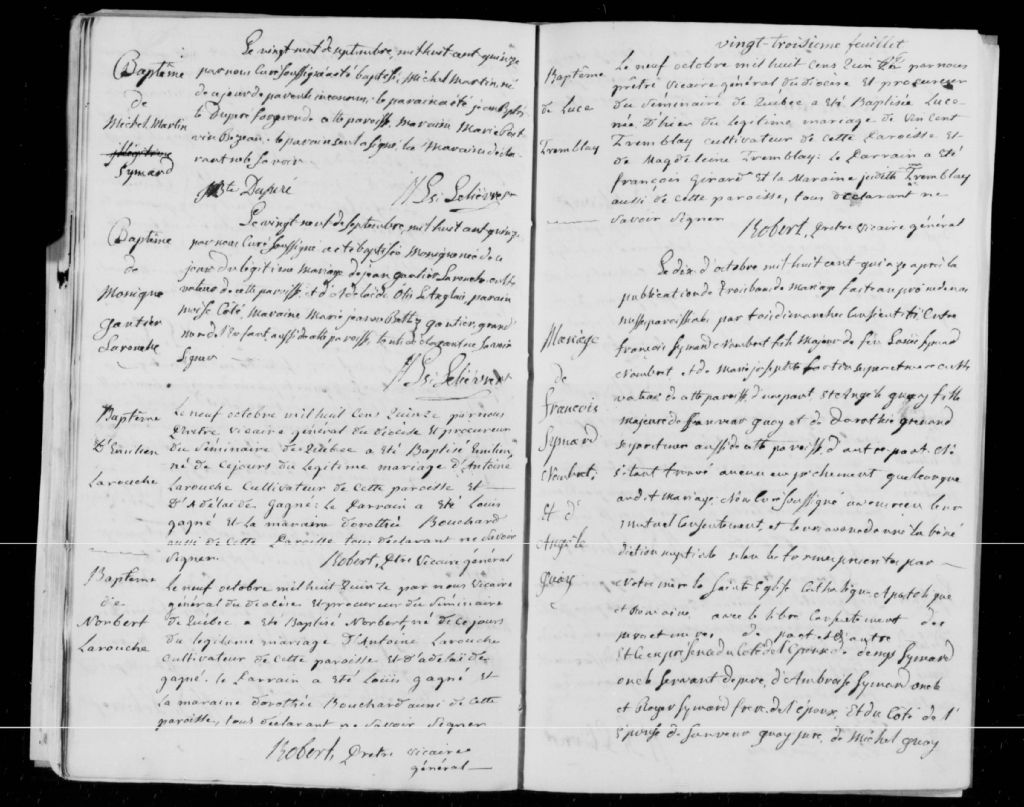 Baptême
de
Michel Martin
illégitime
Symard
Le vingt neuf de septembre, mil huit cent quinze
par nous Curé soussigné a été baptisé, Michel Martin, né
de ce jour de parents inconnus; le parain a été jean Bpte
le Dupré forgeron de cette paroisse, maraine Marie
le parain seul a signé, la Maraine décla-
rant ne le savoir
Bte Dupéré
Ls. Lelièvre ptre
Baptême
de
Monique
gautier
Larouche
Le vingt neuf de septembre, mil huit cent quinze
par nous Curé soussigné a été baptisée Monique née de ce
jour du légitime mariage de jean gautier Larouche culti-
vateur de cette paroisse, et d'Adelaïde Otis Langlais, parain
Moïse Coté, Maraine Marie jeanne gautier, grand
de l'Enfant aussi de cette paroisse, le
signer
Ls. Lelièvre ptre
Baptême
D'Emilien
Larouche
Le neuf octobre mil huit Cens Quinze par nous
Prêtre Vicaire général du diocèse Et procureur
du Séminaire de Québec a Eté Baptisé Emilien,
né de Cejours du Légitime mariage d'Antoine
Larouche Cultivateur de Cette paroisse et
D'Adélaïde Gagné: le Parrain a Eté Louis
gagné Et la maraine dorothée Bouchard
aussi de Cette Paroisse tous déclarant ne Savoir
signer. Robert, Ptre Vicaire général
Baptême
de
Norbert
Larouche
Le neuf octobre mil huit Quinze par nous Vicaire
général du diocèse Et procureur du Séminaire
de Québec a Eté Baptisé Norbert, né de ce jours
du légitime mariage D'Antoine Larouche
Cultivateur de Cette paroisse et D'adelaïde
gagné. le Parrain a Eté Louis gagné Et
la maraine dorothée Bouchard aussi de Cette
paroisse, tous déclarant ne Savoir Signer
Robert, Prêtre Vicaire
général
vingt-troisieme feuillet
Baptême
de Luce
Tremblay
Le neuf octobre mil huit Cens Quinze par nous
prêtre Vicaire général du diocèse Et procureur
du Séminaire de Québec, a Eté Baptisée Luce
née D'hier du Légitime mariage de Vincent
Tremblay cultivateur de Cette Paroisse Et
de Magdeleine Tremblay: le Parrain a Eté
François Girard Et la Maraine judith Tremblay
aussi de Cette paroisse, tous declarant ne
Savoir Signer
Robert, Prêtre Vicaire général
Mariage
de
François
Symard
Nombert
Et d'
Angèle
guay
Le dix d'octobre mil huit cent quinze après la
publication de trois bans de mariage fait au prône de nos
messes paroissiales par trois dimanches consécutifs Entre
françois Symard Nombert fils Majeur de feu Louis Symard
Nombert, et de Marie josephte fortin ses pere et mere culti-
vateur de cette paroisse, d'une part, et Angèle guay fille
majeure de Sauveur guay et de Dorothée grenand
ses pere et mere aussi de cette paroisse, d'autre part. Et
s'étant trouvé aucun empêchement quelconque
au dit Mariage; Nous Curé soussigné avons reçu leur
mutuel Consentement, et leur avons donné la béné-
diction nuptiale selon les formes prescrites par
notre mère la Sainte Eglise Catholique Apostolique
et Romaine, avec le libre Consentement des
pere et mere de part et d'autre
Et ce en présence du coté de l'Epoux de denys Symard
oncle servant de pere, d'Ambroise Symard oncle
et Roger Symard frere de l'époux, Et du Coté de l'
Epouse de Sauveur guay pere, de Michel guay